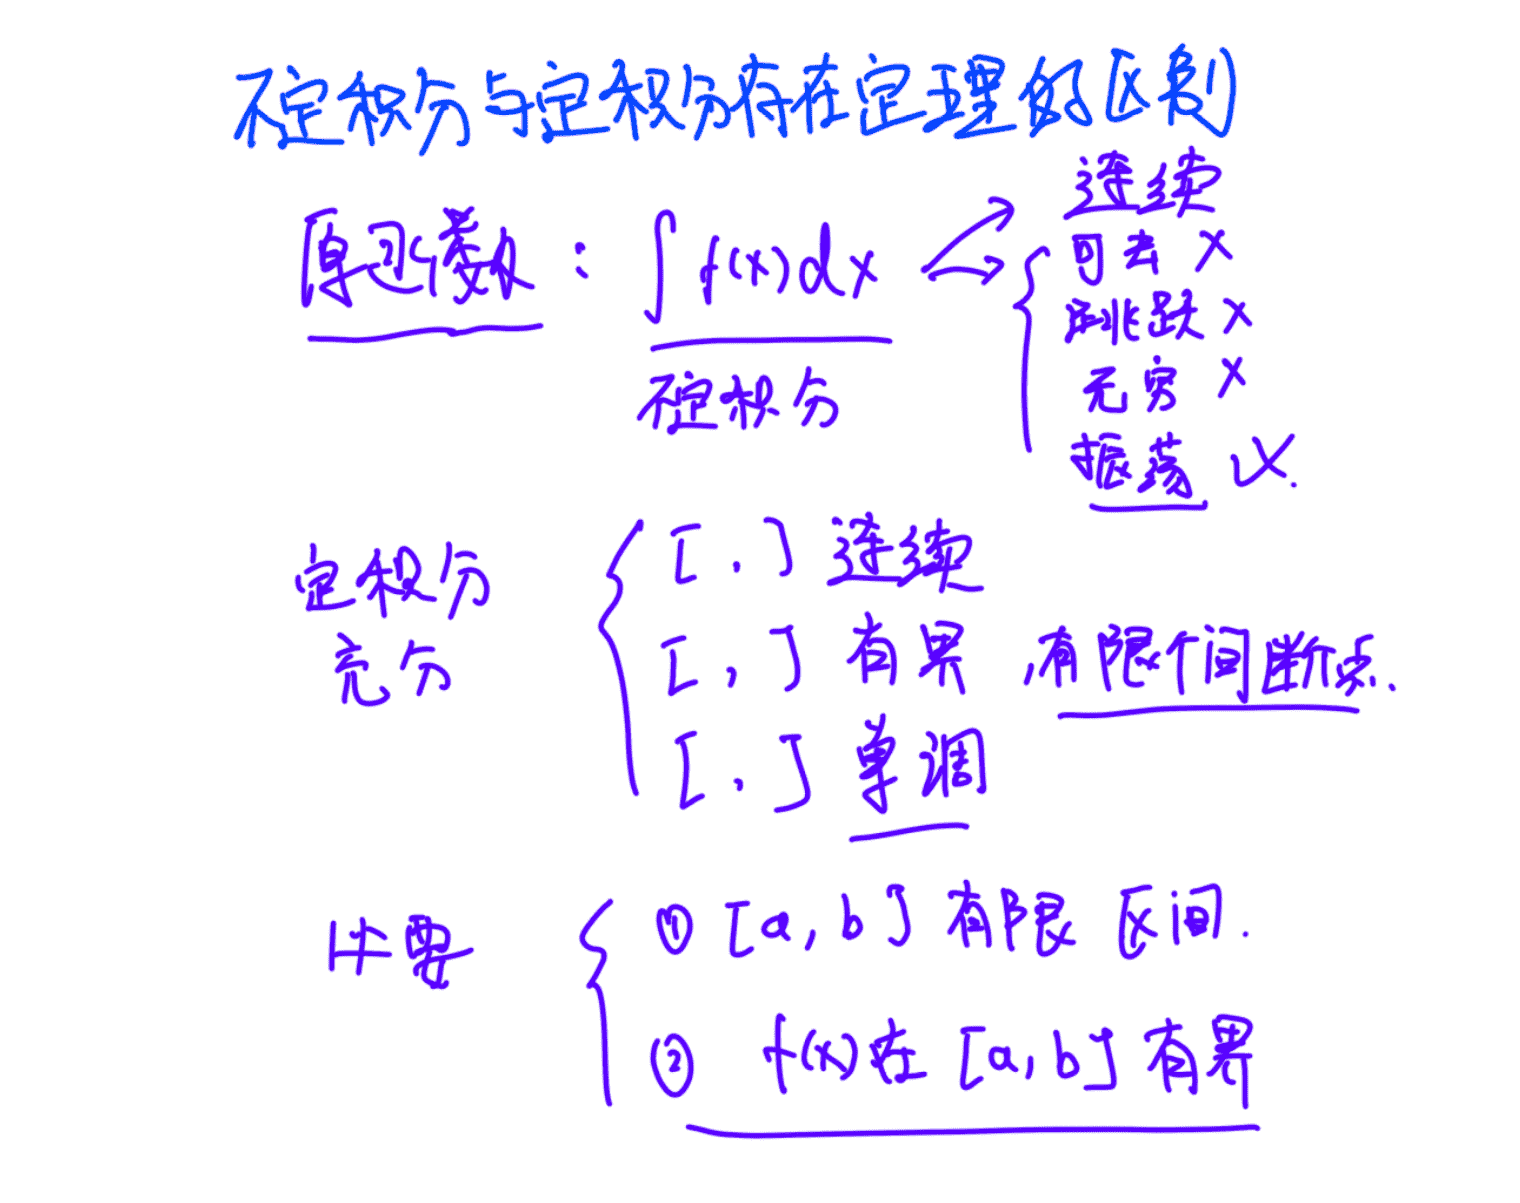 不定积分与定积分存在定理的区别
原函数： ∫ f(x)dx
不定积分
连续
可去 ×
跳跃 ×
无穷 ×
振荡 √×.
定积分
充分
[ , ] 连续
[ , ] 有界 , 有限个间断点.
[ , ] 单调
必要
① [a, b] 有限 区间.
② f(x)在 [a, b] 有界